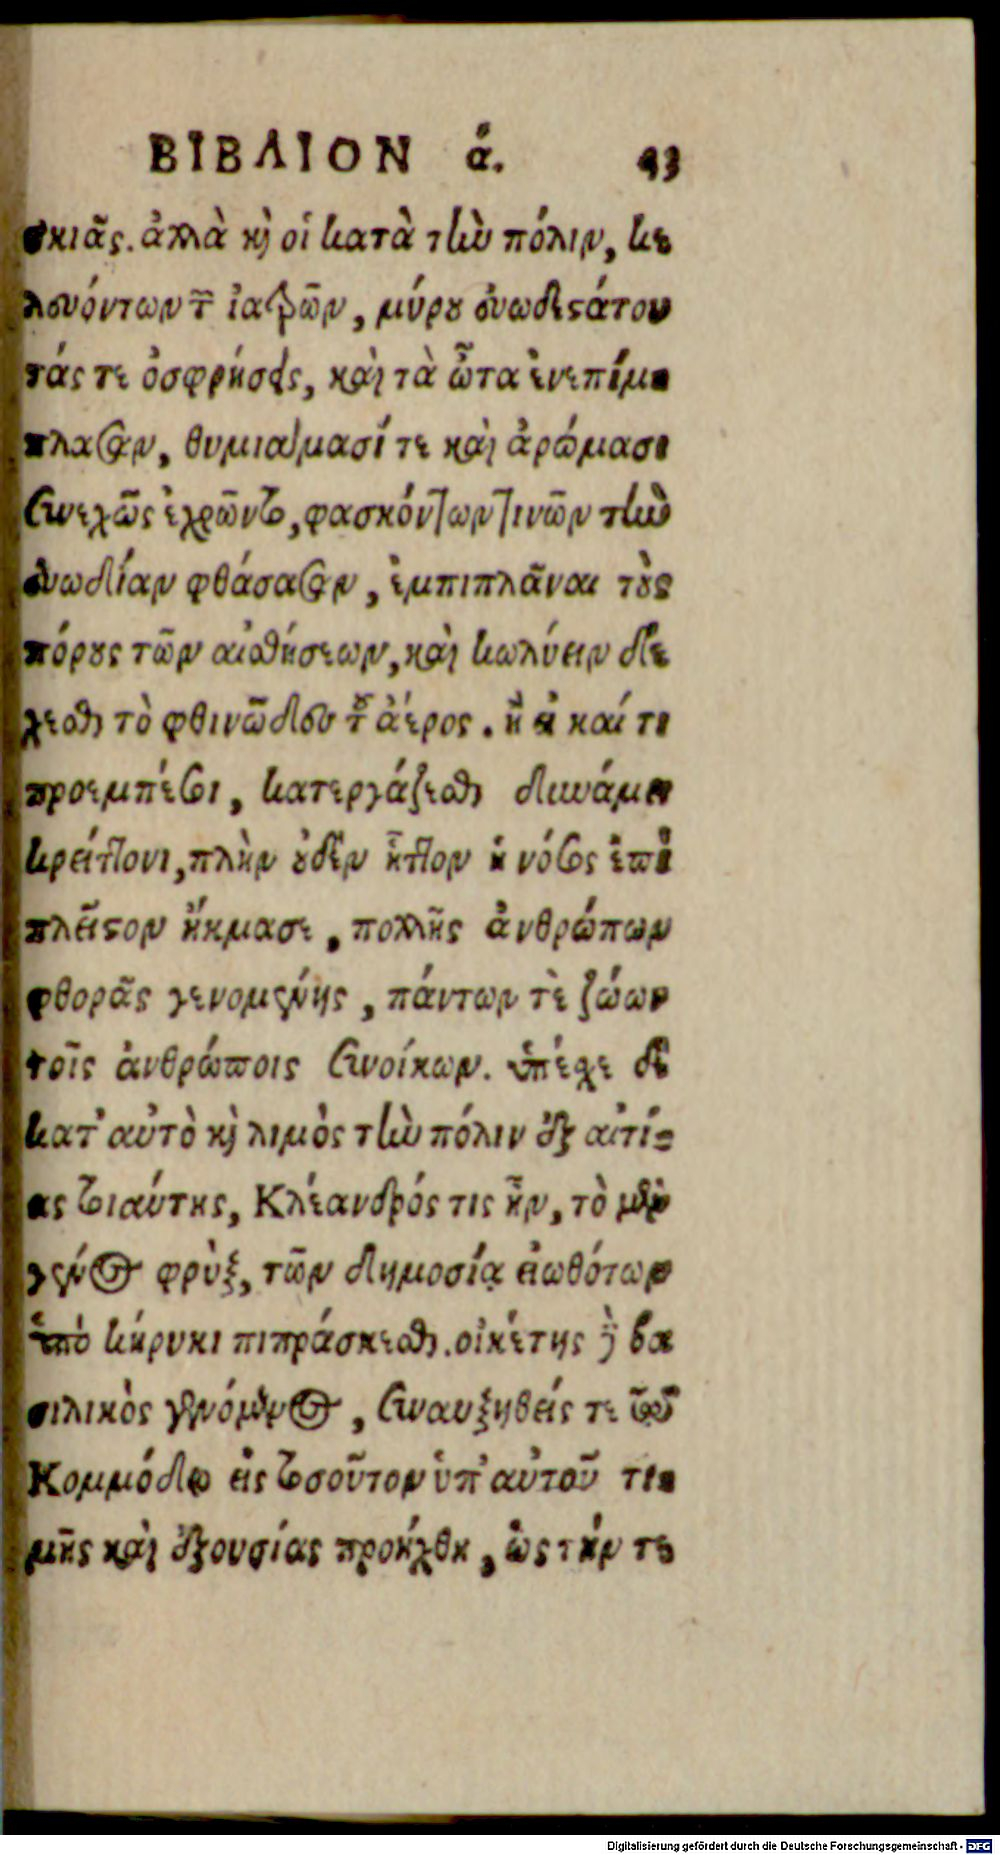 ΒΙΒΛΙΟΝ ά. 43
σκιᾶς. ἀλλὰ κὶ οἱ κατὰ τὴν πόλιν, κε
λευόντων τ῀ ἰατρῶν, μύρου εὐωδεστάτου
τάς τε ὀσφρήσεις, καὶ τὰ ὦτα ἐνεπίμ-
πλασαν, θυμιάμασί τε καὶ ἀρώμασι
συνεχῶς ἐχρῶντο, φασκόντων τινῶν τὴν
εὐωδίαν φθάσασαν, ἐμπιπλᾶναι τοὺς
πόρους τῶν αἰσθήσεων, καὶ κωλύειν δέ
χεσθαι τὸ φθινῶδες τοῦ ἀέρος. ἢ εἰ καί τι
προεμπέσοι, κατεργάζεσθαι δυνάμει
κρείττονι, πλὴν οὐδὲν ἧττον ἡ νόσος ἐπὶ
πλεῖστον ἤκμασε, πολλῆς ἀνθρώπων
φθορᾶς γενομένης, πάντων τὲ ζώων
τοῖς ἀνθρώποις συνοίκων. ὑπέχε δὲ
κατ' αὐτὸ κὶ λιμὸς τὴν πόλιν ἐξ αἰτί-
ας τοιαύτης, Κλέανδρός τις ἦν, τὸ μὲν
γένος φρὺξ, τῶν δημοσίᾳ εἰωθότων
ὑπὸ κήρυκι πιπράσκεσθαι. οἰκέτης δὲ βα
σιλικὸς γενόμενος, συναυξηθείς τε τῷ
Κομμόδῳ εἰς τοσοῦτον ὑπ' αὐτοῦ τι-
μῆς καὶ ἐξουσίας προήχθη, ὡς τήν τε
Digitalisierung gefördert durch die Deutsche Forschungsgemeinschaft - DFG